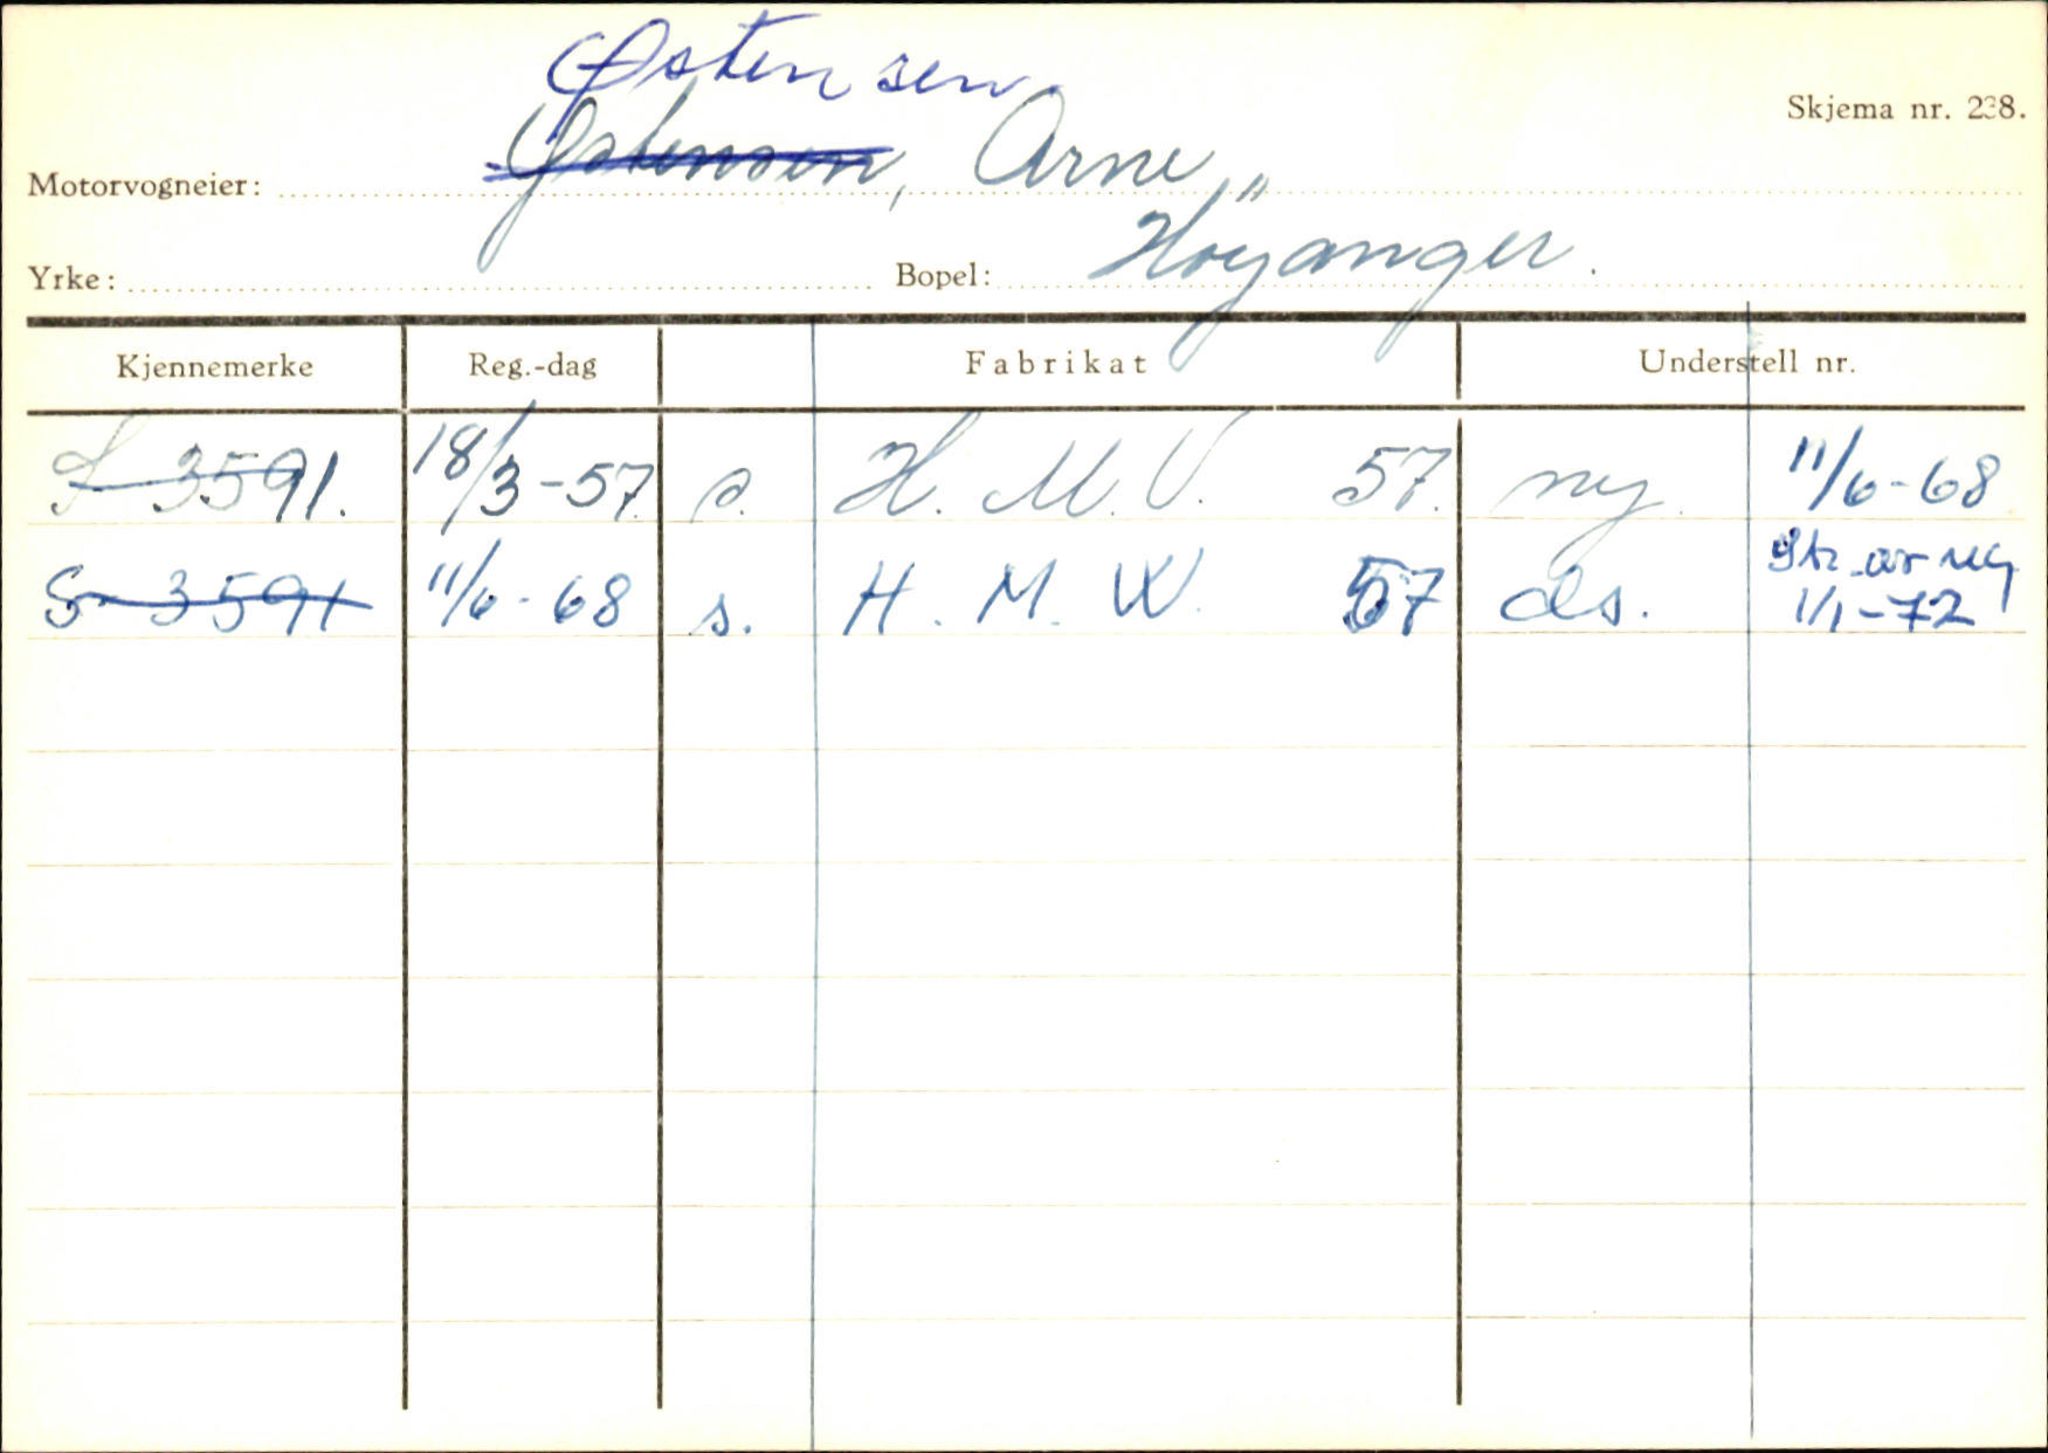 Østensen
Skjema nr. 238.
Motorvogneier: Østensen, Arne
Yrke: Bopel: Höyanger.
Kjennemerke Reg.-dag Fabrikat Understell nr.
S 3591. 18/3-57 s. H. M. V. 57. ny. 11/6-68
S-3591 11/6-68 s. H. M. W. 57 ds. av reg 1/1-72